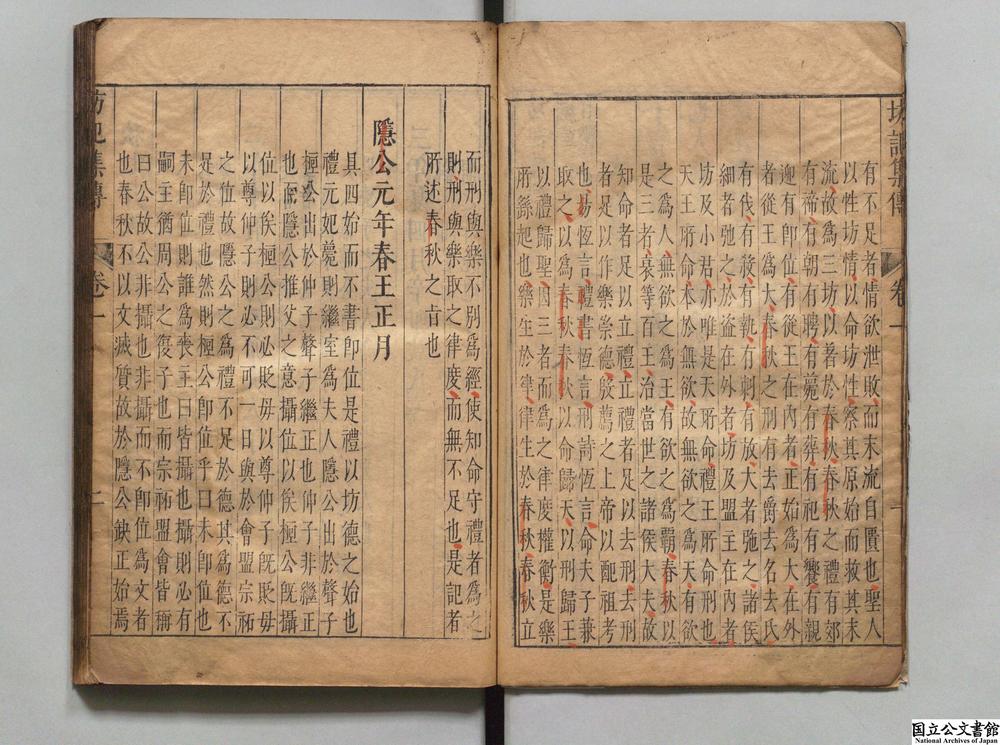 坊記集傳
卷一
一
有不足者情欲泄敗而末流自匱也聖人
以性坊情以命坊性察其原始而救其末
流故為三坊以著於春秋春秋之禮有郊
有禘有朝有聘有薨有葬有祀有饗有親
迎有即位有從王在內者正始為大在外
者從王為大春秋之刑有去爵去名去氏
有伐有殺有執有刺有放大者弛之諸侯
細者弛之於盜在外者坊及盟主在內者
坊及小君亦唯是天所命禮王所命刑也
天王所命本於無欲故無欲之為天有欲
之為人無欲之為王有欲之為霸春秋以
是三者衰等百王治當世之諸侯大夫故
知命者是以立禮立禮者足以去刑去刑
者是以作樂崇德殷薦之上帝以配祖考
也易恆言禮書恆言刑詩恆言命夫子兼
取之以為春秋春秋以命歸天以刑歸王
以禮歸聖因三者而為之律度權衡是樂
所繇起也樂生於律律生於春秋春秋立
而刑與樂不別為經使知命守禮者為之
則刑與樂取之律度而無不足也是記者
所述春秋之音也
隱公元年春王正月
具四始而不書即位是禮以坊德之始也
禮元妃薨則繼室為夫人隱公出於聲子
桓公出於仲子聲子繼正也仲子非繼正
也而隱公推父之意攝位以俟桓公既攝
位以俟桓公則必貶毋以尊仲子既貶毋
以尊仲子則必不可一日與於會盟宗祏
之位故隱公之為禮不足於德其為德不
足於禮也然則桓公即位乎曰未即位也
未即位則誰為喪主曰皆攝也攝則必有
嗣主猶周公之復子也而宗祏盟會皆稱
曰公故公非攝也非攝而不即位為文者
也春秋不以文滅質故於隱公缺正始焉
坊記集傳
卷一
二
国立公文書館
National Archives of Japan